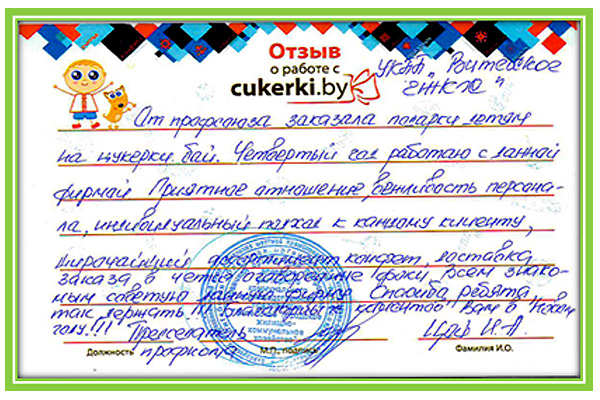 Отзыв
о работе с
cukerki.by
УКПП "Витебское
ГЖКХ"
От профсоюза заказала подарки детям
на цукерки бай. Четвертый год работаю с данной
фирмой. Приятное отношение, вежливость персона-
ла, индивидуальный подход к каждому клиенту,
широчайший ассортимент конфет, доставка
заказа в четко оговоренные сроки. Всем знако-
мым советую данную фирму. Спасибо ребята
так держать!!! Благодарных клиентов Вам в Новом
году!!! Председатель
профкома
Должность М.П., подпись Фамилия И.О.
жилищно-
коммунальное
хозяйство